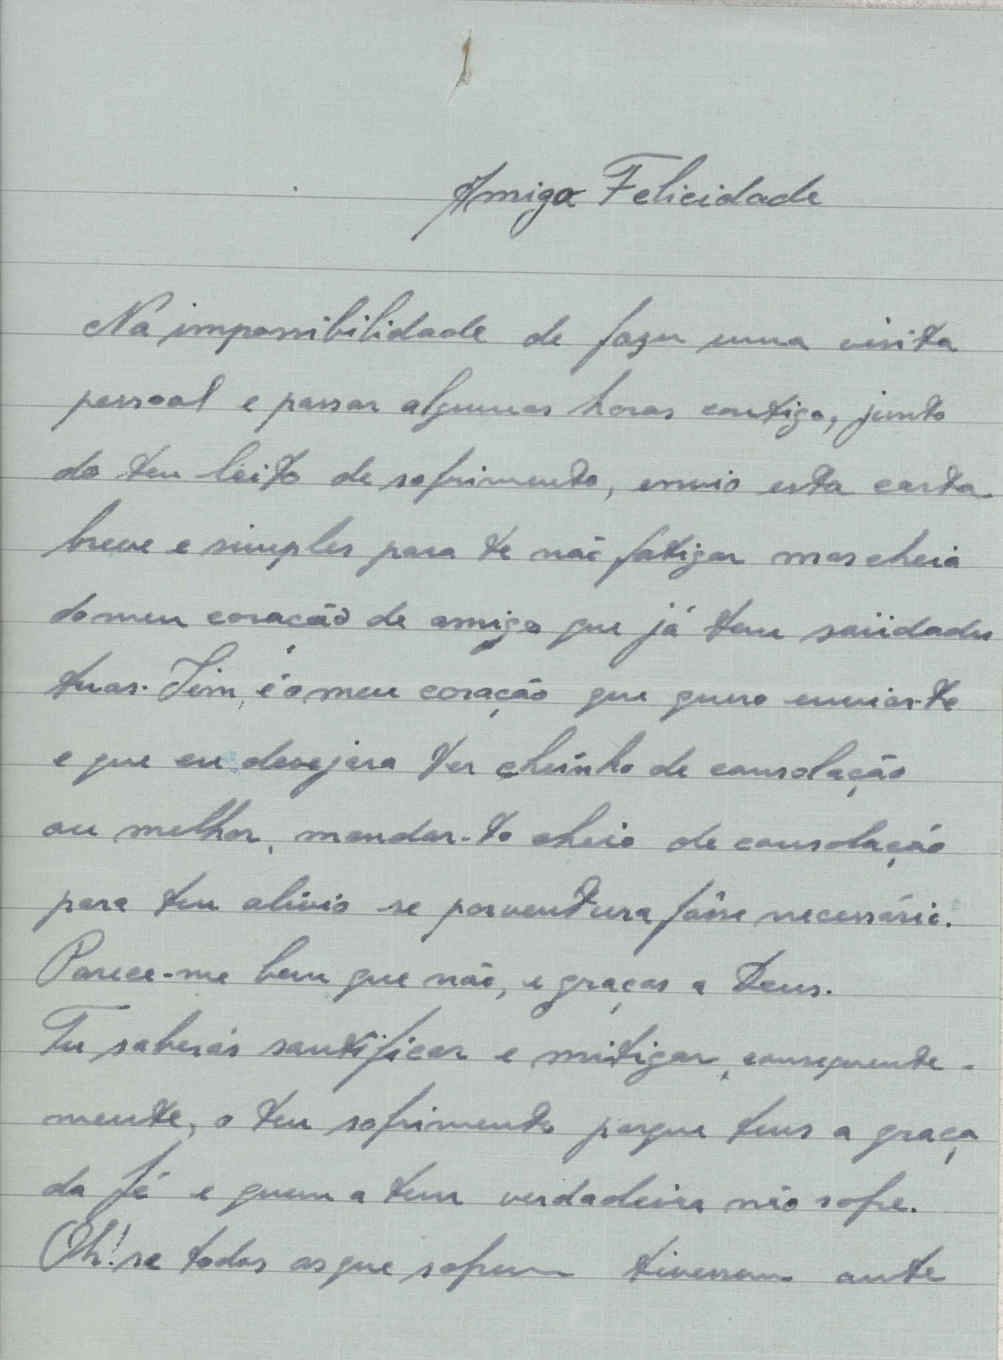 Amiga Felicidade
Na impossibilidade de fazer uma visita
pessoal e passar algumas horas contigo, junto
do teu leito de sofrimento, envio esta carta
breve e simples para te não fatigar mas cheia
do meu coração de amiga que já tem saüdades
tuas. Sim, é o meu coração que quero enviar-te
e que eu desejara ter cheiínho de consolação
ou melhor, mandar-to cheio de consolação
para teu alívio se porventura fôsse necessário.
Parece-me bem que não, e graças a Deus.
Tu saberás santificar e mitigar, consequente-
mente, o teu sofrimento porque tens a graça
da fé e quem a tem verdadeira não sofre.
Oh! se todos os que sofrem tivessem ante